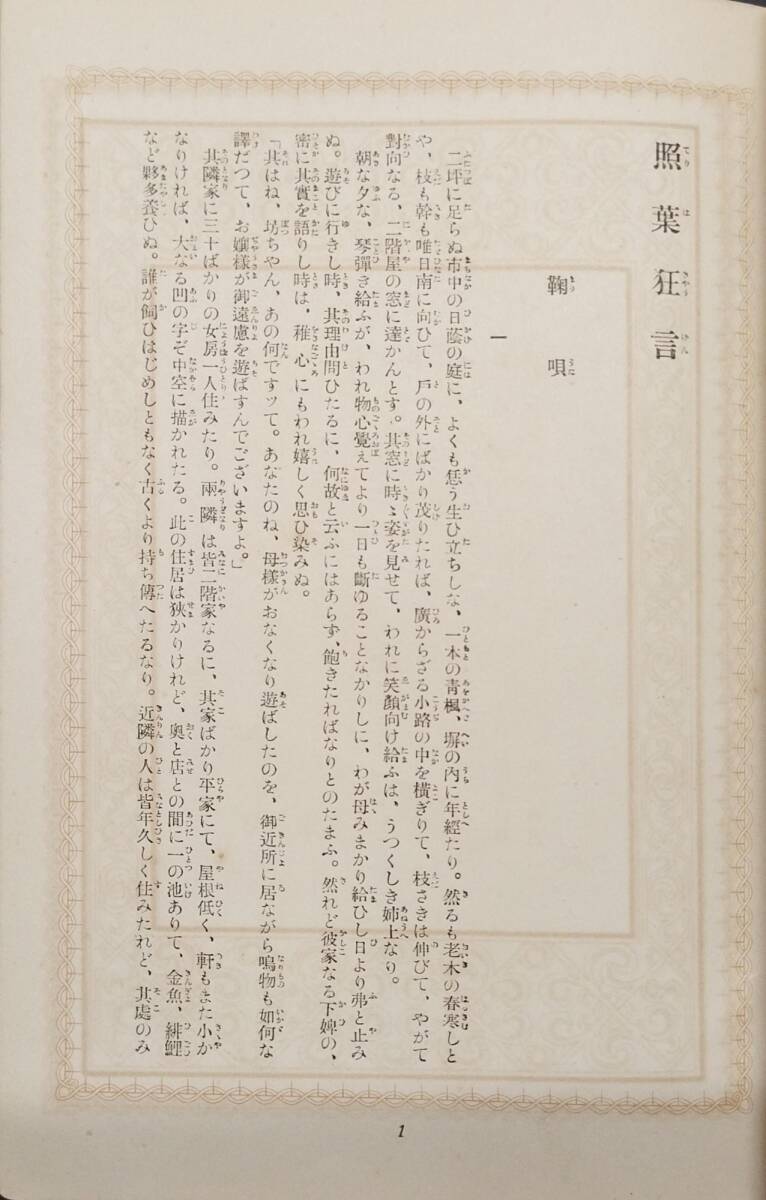 照葉狂言
鞠唄
一
二坪に足らぬ市中の日蔭の庭に、よくも恁う生ひ立ちしな、一本の青楓、塀の內に年經たり。然るも老木の春寒しと
や、枝も幹も唯日南に向ひて、戶の外にばかり茂りたれば、廣からざる小路の中を橫ぎりて、枝さきは伸びて、やがて
對向なる、二階屋の窓に達かんとす。其窓に時〻姿を見せて、われに笑顏向け給ふは、うつくしき姉上なり。
朝な夕な、琴彈き給ふが、われ物心覺えてより一日も斷ゆることなかりしに、わが母みまかり給ひし日より弗と止み
ぬ。遊びに行きし時、其理由問ひたるに、何故と云ふにはあらず、飽きたればなりとのたまふ。然れど彼家なる下婢の、
密に其實を語りし時は、稚心にもわれ嬉しく思ひ染みぬ。
「其はね、坊ちやん、あの何ですッて。あなたのね、母樣がおなくなり遊ばしたのを、御近所に居ながら鳴物も如何な
譯だつて、お孃樣が御遠慮を遊ばすんでございますよ。」
其隣家に三十ばかりの女房一人住みたり。兩隣は皆二階家なるに、其家ばかり平家にて、屋根低く、軒もまた小か
なりければ、大なる凹の字ぞ中空に描かれたる。此の住居は狹かりけれど、奧と店との間に一の池ありて、金魚、緋鯉
など夥多養ひぬ。誰が飼ひはじめしともなく古くより持ち傳へたるなり。近隣の人は皆年久しく住みたれど、其處のみ
1